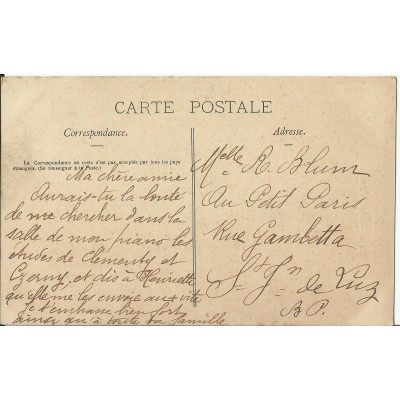 CARTE POSTALE
Correspondance.
La Correspondance au recto n'est pas acceptée par tous les pays
étrangers. (Se renseigner à la Poste.)
Ma chère amie
Aurais-tu la bonté
de me chercher dans la
salle de mon piano les
études de Clementy et
Czerny, et dis à Henriette
qu'elle me les envoie au + vite
je t'embrasse bien fort
ainsi qu'à toute ta famille
Adresse.
Melle R. Blum
Au Petit Paris
Rue Gambetta
St Jn de Luz
B.P.